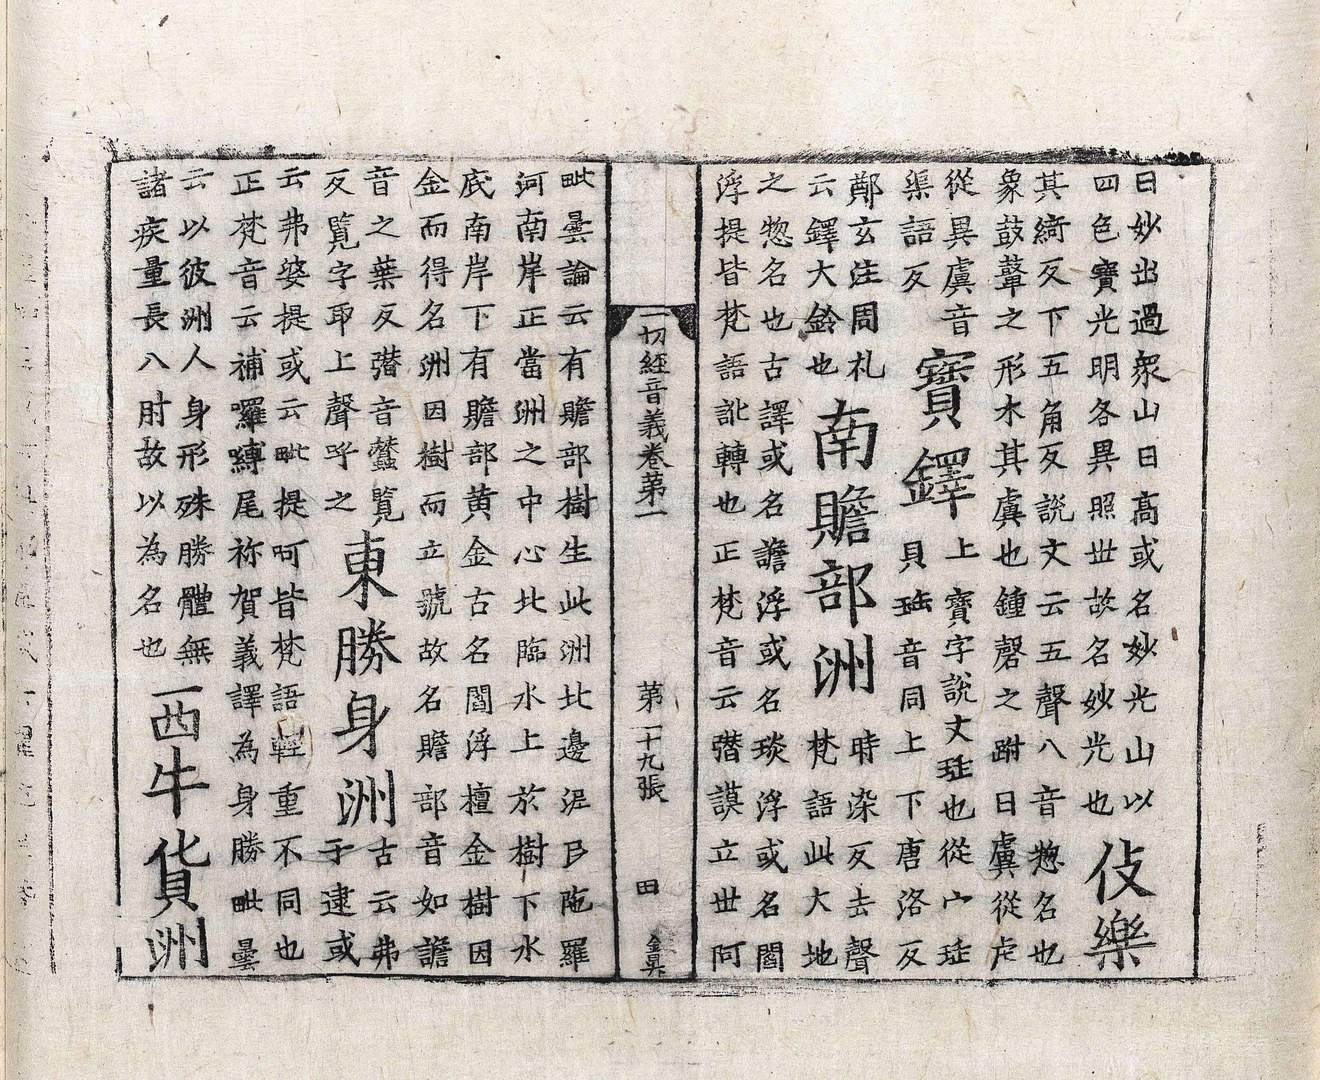 日妙出過衆山日髙或名妙光山以
四色寶光明各異照丗故名妙光也
伎樂
其綺反下五角反説文云五聲八音惣名也
象鼓鼙之形木其虡也鍾磬之跗曰虡從虍
從異虡音
渠語反
寶鐸
上寶字説文珤也從宀珤
貝珤音同上下唐洛反
鄭玄注周礼
云鐸大鈴也
南贍部洲
時染反去聲
梵語此大地
之惣名也古譯或名譫浮或名琰浮或名閻
浮提皆梵語訛轉也正梵音云䜟謨立丗阿
一切經音義卷苐一
苐二十九張
田
金昇
毗曇論云有贍部樹生此洲北邊泥民陁羅
河南岸正當洲之中心北臨水上於樹下水
底南岸下有贍部黄金古名閻浮檀金樹因
金而得名洲因樹而立號故名贍部音如譫
音之葉反䜟音蠶覧
反覧字取上聲呼之
東勝身洲
古云弗
于逮或
云弗婆提或云毗提呵皆梵語輕重不同也
正梵音云補囉嚩尾祢賀義譯為身勝毗曇
云以彼洲人身形殊勝體無
諸疾量長八肘故以為名也
西牛貨洲